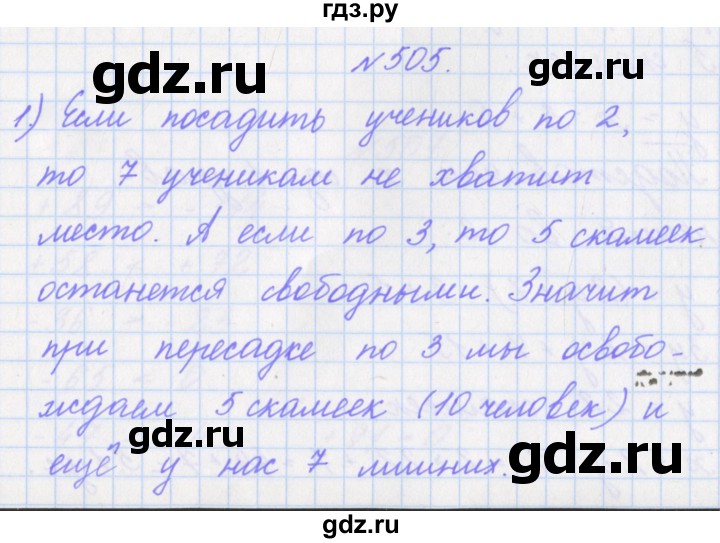 гдз.ру
gdz.ru
gdz.ru
№505.
1.) Если посадить учеников по 2,
то 7 ученикам не хватит
место. А если по 3, то 5 скамеек
останется свободными. Значит
при пересадке по 3 мы освобо-
ждаем 5 скамеек (10 человек) и
ещё у нас 7 лишних.
gdz.ru
gdz.ru
gdz.ru